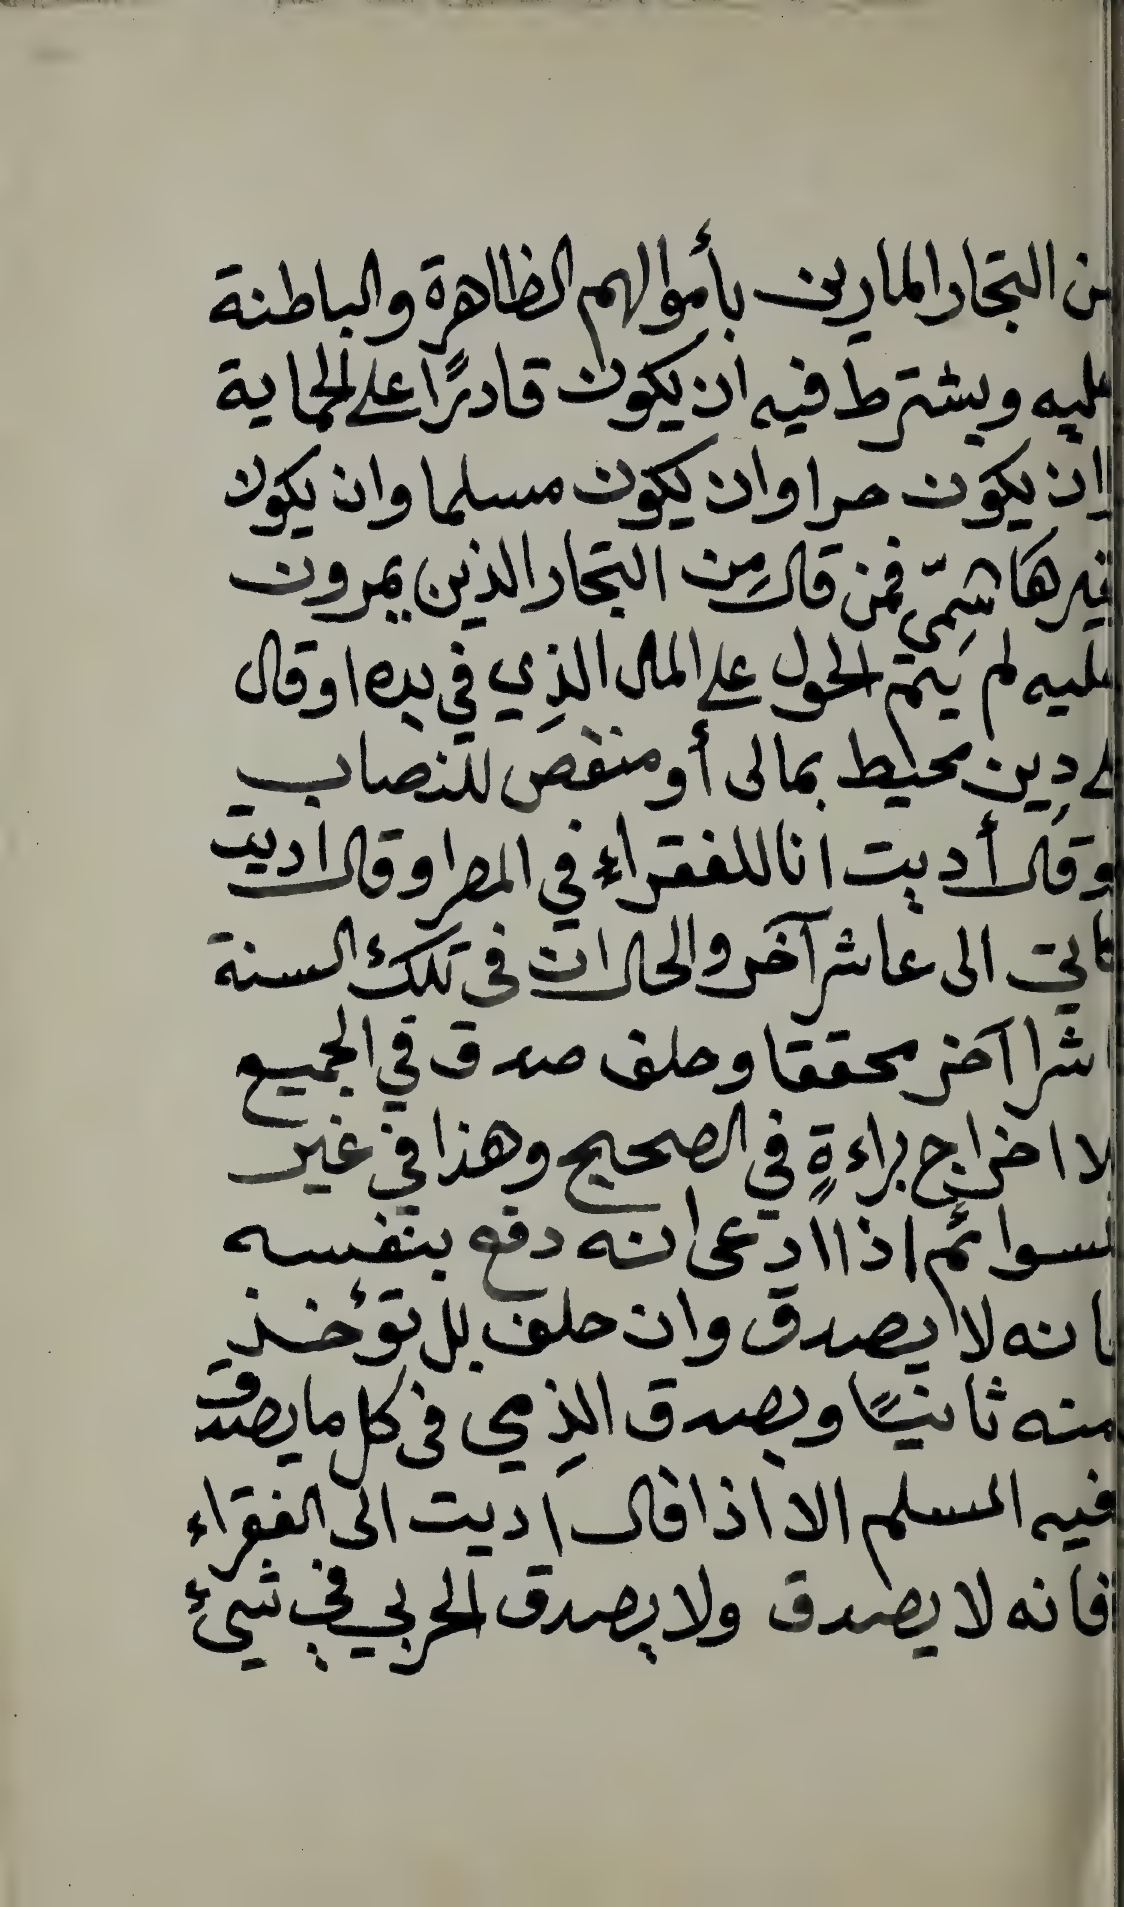 من التجار المارين بأموالهم الظاهرة والباطنة
عليه ويشترط فيه ان يكون قادرًا على الحماية
ان يكون حرا وان يكون مسلما وان يكون
غيرها شمى فمن قال من التجار الذين يمرون
عليه لم يتم الحول على المال الذي في يده او قال
على دين محيط بمالى أو منقص للنصاب
وقال أديت انا للفقراء في المصر او قال اديت
الى عاشر آخر والحال ان فى تلك السنة
اشرا آخر محققا وحلف صدق في الجميع
لا اخراج براءةٍ في الصحيح وهذا في غير
لسوائم اذا ادعى انه دفع بنفسه
انه لا يصدق وان حلف بل تؤخذ
منه ثانيًا ويصدق الذمي فى كل ما يصدق
فيه المسلم الا اذا قال اديت الى الفقراء
فانه لا يصدق ولا يصدق الحربي في شيء